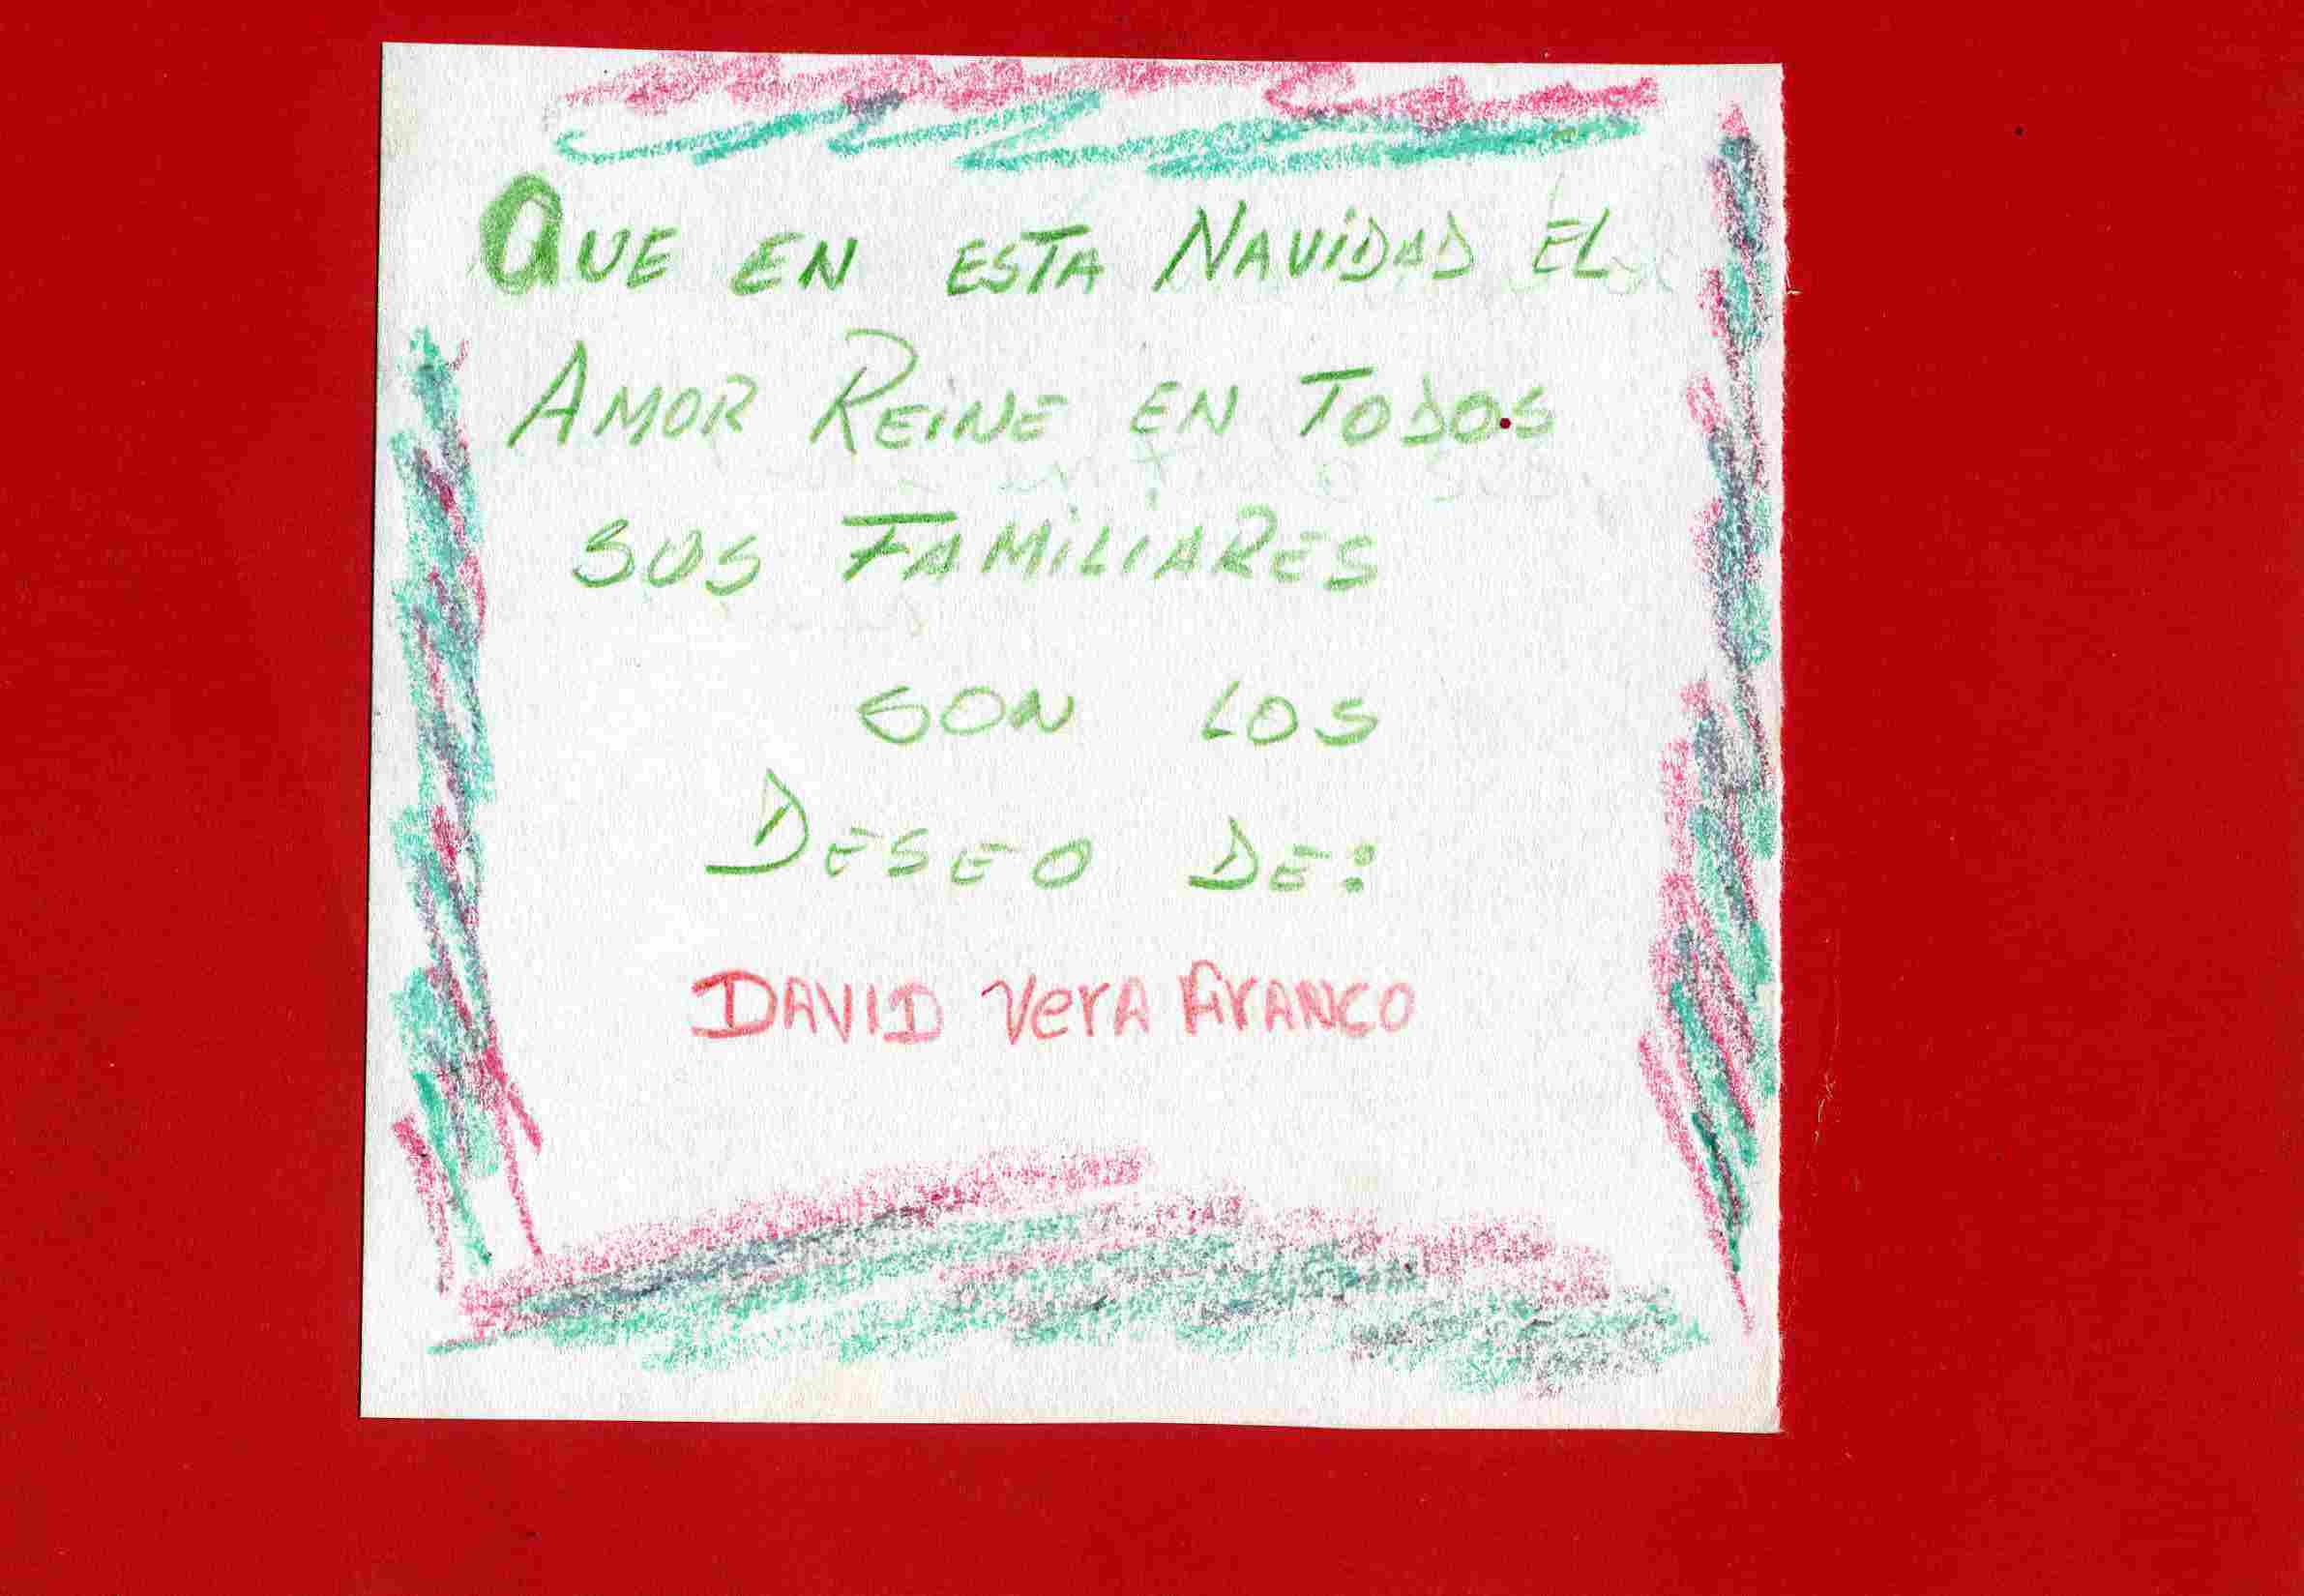 QUE EN ESTA NAViDAD EL
AMOR REiNE EN TODOS
SUS FAMiLiARES
SON LOS
DESEO DE:
DAVID VerA FrANCO